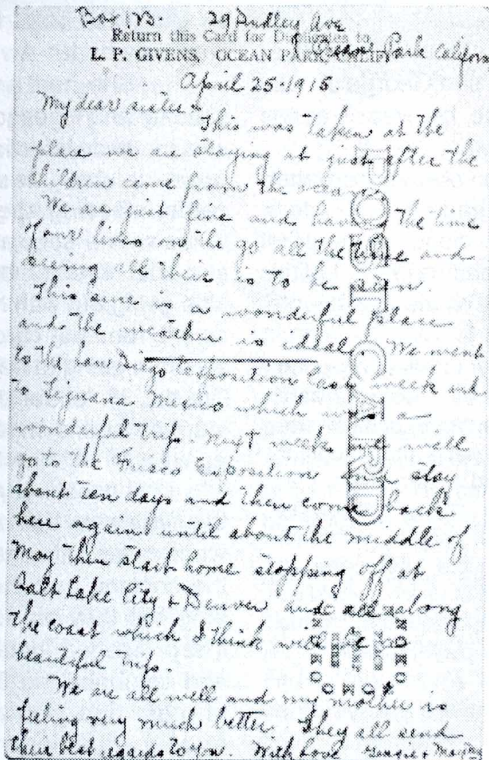 Box 123. 29 Dudley Ave
Return this Card for Duplicates to
L. P. GIVENS, OCEAN PARK, CALIF.
Ocean Park Californ
April 25-1915.
My dear sister
This was taken at the
place we are staying at just after the
children come from the ocean.
We are just fine and having the time
of our lives on the go all the time and
seeing all their is to be seen.
This sure is a wonderful place
and the weather is ideal. We went
to the San Diego Exposition last week and
to Tijuana Mexico which was a
wonderful trip. Next week we will
go to the Frisco Exposition and stay
about ten days and then come back
here again until about the middle of
May then start home stopping off at
Salt Lake City + Denver and all along
the coast which I think will be a
beautiful trip.
We are all well and my mother is
feeling very much better. They all send
their best regards to you. With Love
POST CARD